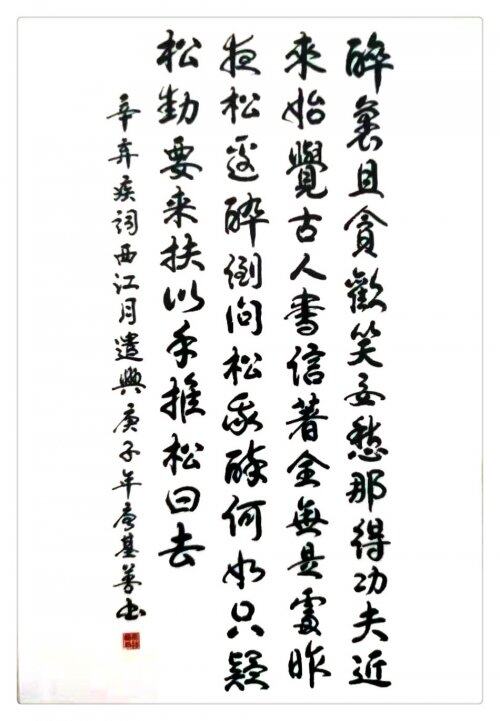 醉裏且貪歡笑要愁那得功夫近
來始覺古人書信著全無是處昨
夜松邊醉倒問松我醉何如只疑
松動要来扶以手推松曰去
辛弃疾詞西江月遣興庚子年基善书